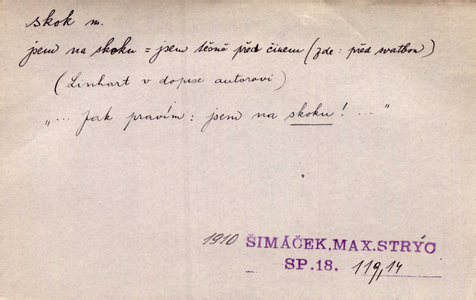 skok m.
jsem na skoku = jsem těsně před činem (zde: před svatbou)
(Linhart v dopise autorovi)
„... Jak pravím: jsem na skoku! ..."
1910 ŠIMÁČEK, MAX. STRÝC
SP.18. 119,14